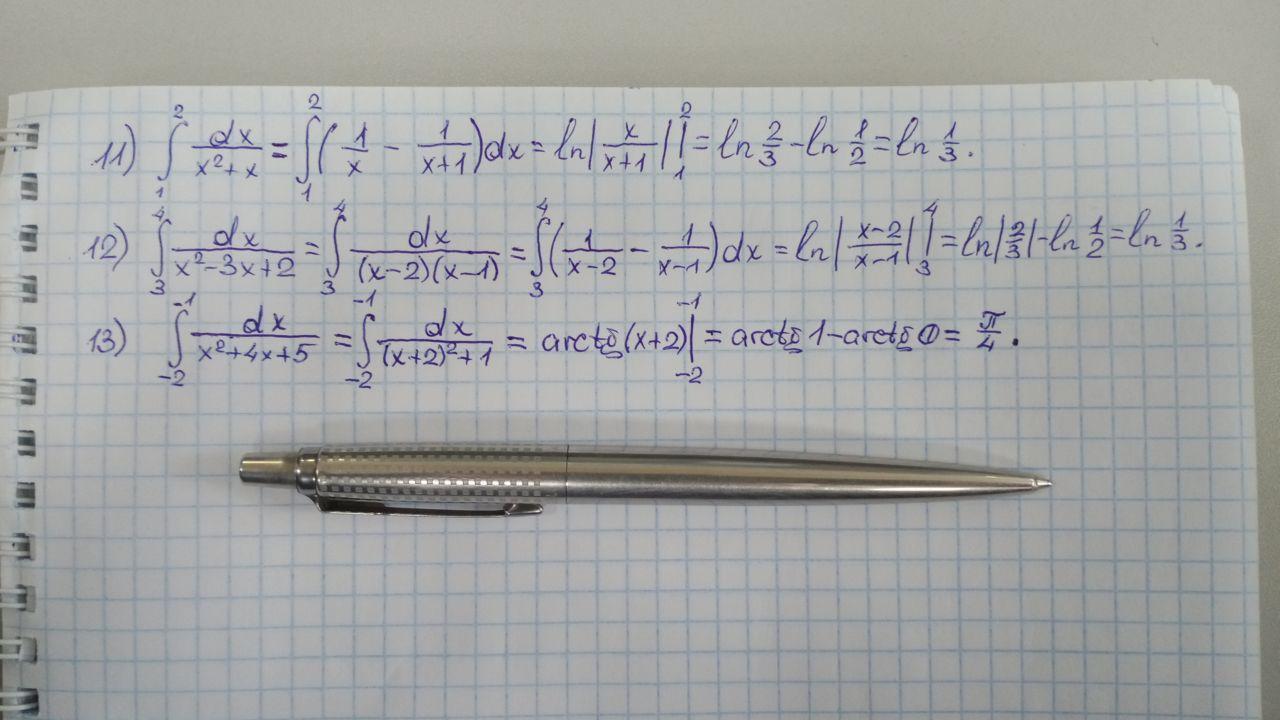 11) ∫₁² dx/(x²+x) = ∫₁² (1/x − 1/(x+1))dx = ln|x/(x+1)| |₁² = ln 2/3 − ln 1/2 = ln 1/3.
12) ∫₃⁴ dx/(x²−3x+2) = ∫₃⁴ dx/((x−2)(x−1)) = ∫₃⁴ (1/(x−2) − 1/(x−1))dx = ln|(x−2)/(x−1)| |₃⁴ = ln|2/3| − ln 1/2 = ln 1/3.
13) ∫₋₂⁻¹ dx/(x²+4x+5) = ∫₋₂⁻¹ dx/((x+2)²+1) = arctg(x+2)|₋₂⁻¹ = arctg 1 − arctg 0 = π/4.